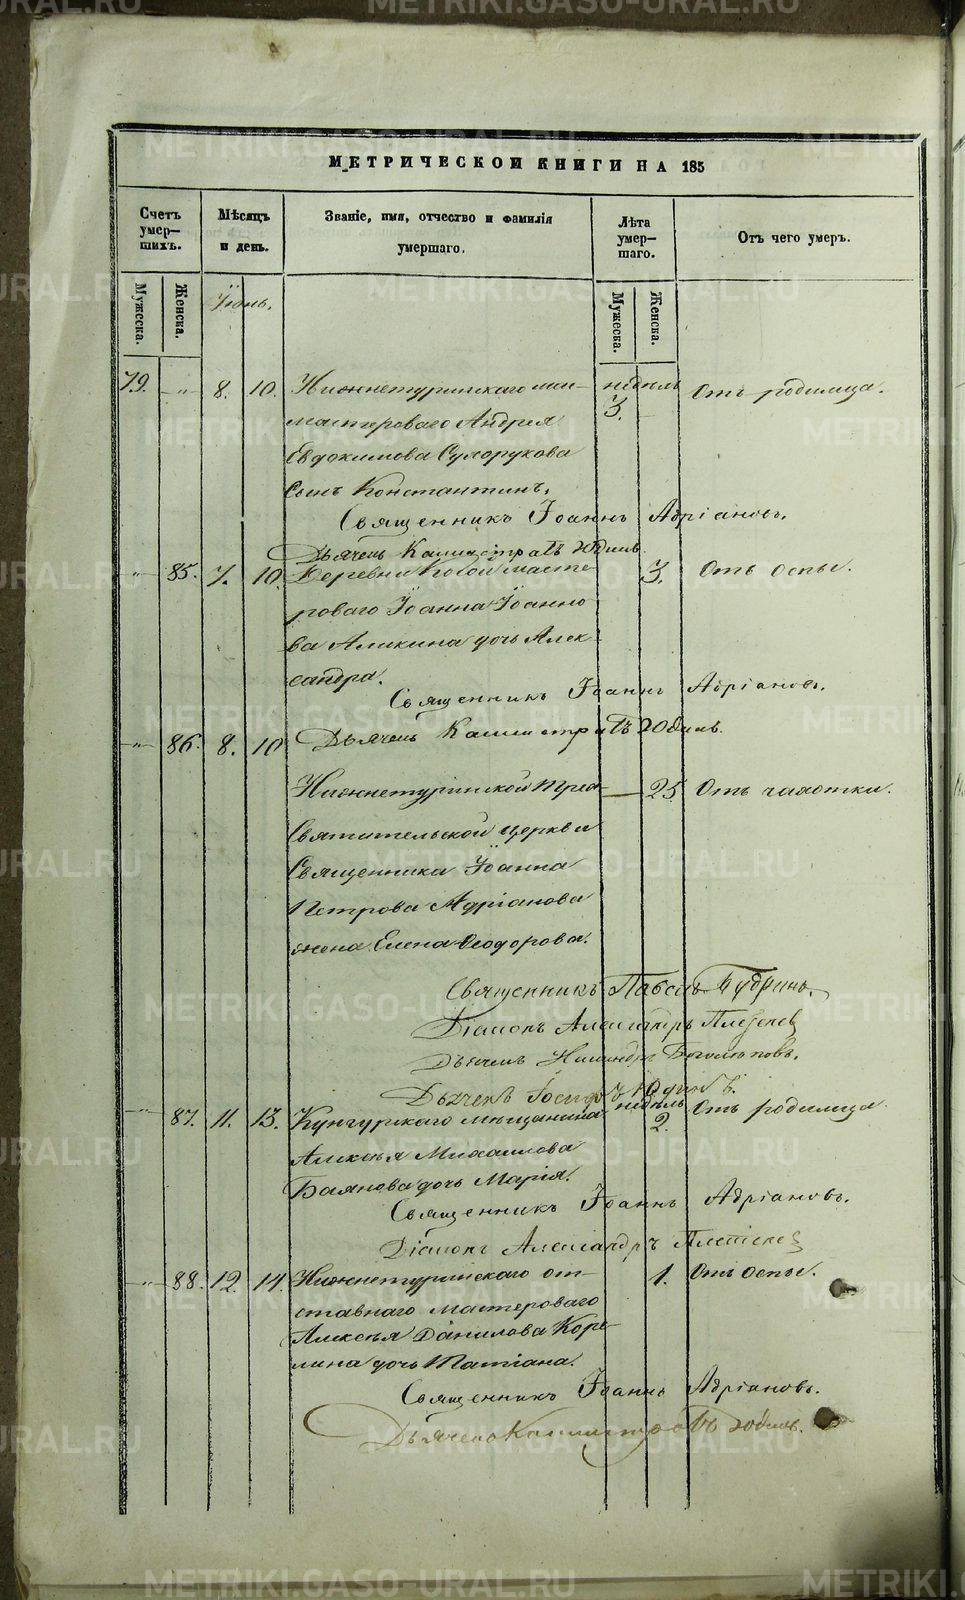 МЕТРИЧЕСКОЙ КНИГИ НА 185
Счетъ умер-шихъ.
Мѣсяцъ и день.
Званіе, имя, отчество и фамилія умершаго.
Лѣта умер-шаго.
Отъ чего умеръ.
Мужеска.
Женска.
Іюнь.
Мужеска.
Женска.
79. „ 8. 10. Нижнетуринскаго недѣль 3. Отъ родимца.
мастероваго Андрея
Евдокимова Сухорукова
сынъ Константинъ.
Священникъ Іоаннъ Адріановъ.
Дьячекъ Каллистратъ Юдинъ
„ 85. 7. 10. Деревни Новой масте- 3. Отъ оспы.
роваго Іоанна Іоанно
ва Аликина дочь Алек-
сандра.
Священникъ Іоаннъ Адріановъ.
Дьячекъ Каллистратъ Юдинъ.
„ 86. 8. 10
Нижнетуринской Трех- — 25 Отъ чахотки.
Святительской церкви
Священника Іоанна
Петрова Адріанова
жена Елена Ѳеодорова.
Священникъ Павелъ Будринъ.
Діаконъ Александръ
Дьячекъ Никандръ Боголѣповъ.
Дьячекъ Іосифъ Юдинъ.
„ 87. 11. 13. Кунгурскаго мѣщанина недѣль 2. Отъ родимца.
Алексѣя Михайлова
Баянова дочь Марія.
Священникъ Іоаннъ Адріановъ.
Діаконъ Александръ
„ 88. 12. 14. Нижнетуринскаго от- 1. Отъ оспы.
ставнаго мастероваго
Алексѣя Данилова Коре-
лина дочь Татіана.
Священникъ Іоаннъ Адріановъ.
Дьячекъ Каллистратъ Юдинъ.
METRIKI.GASO-URAL.RU